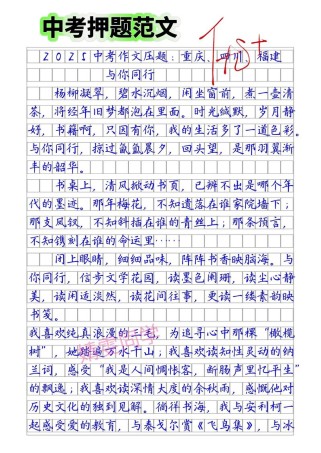 中考押题范文
2025中考作文压题：重庆、四川、福建
与你同行
杨柳凝翠，碧水沉烟，闲坐窗前，煮一壶清
茶，将经年旧梦都泡在里面。时光缄默，岁月静
好，书藉万千，只因有你，我的生活多了一道色彩。
与你同行，掠过氤氲晨夕，回头望，是那羽翼渐
丰的韶华。
书桌上，清风掀动书页，已辨不出是哪个年代
的墨迹。那年梅花，不知遗落在谁家院墙下；
那支凤钗，不知斜插在谁的青丝上；那条预言，
不知镌刻在谁的命运里……
闭上眼睛，细细品味，阵阵书香映脑海。与
你同行，信步文学花园，读墨色阑珊，读尘心静
美，读闲适淡然，读花间往事，更读一缕素韵映
书笺。
我喜欢纯真浪漫的三毛，为追寻心中那棵“橄榄
树”，她踏遍万水千山；我喜欢读知性灵动的纳
兰词，感受“我是人间惆怅客，断肠声里忆平生”
的飘逸；我喜欢读深情大度的余秋雨，感慨他对
历史文化的独到见解。徜徉书海，我与安利柯一
起感受爱的教育，与泰戈尔赏《飞鸟集》，与冰